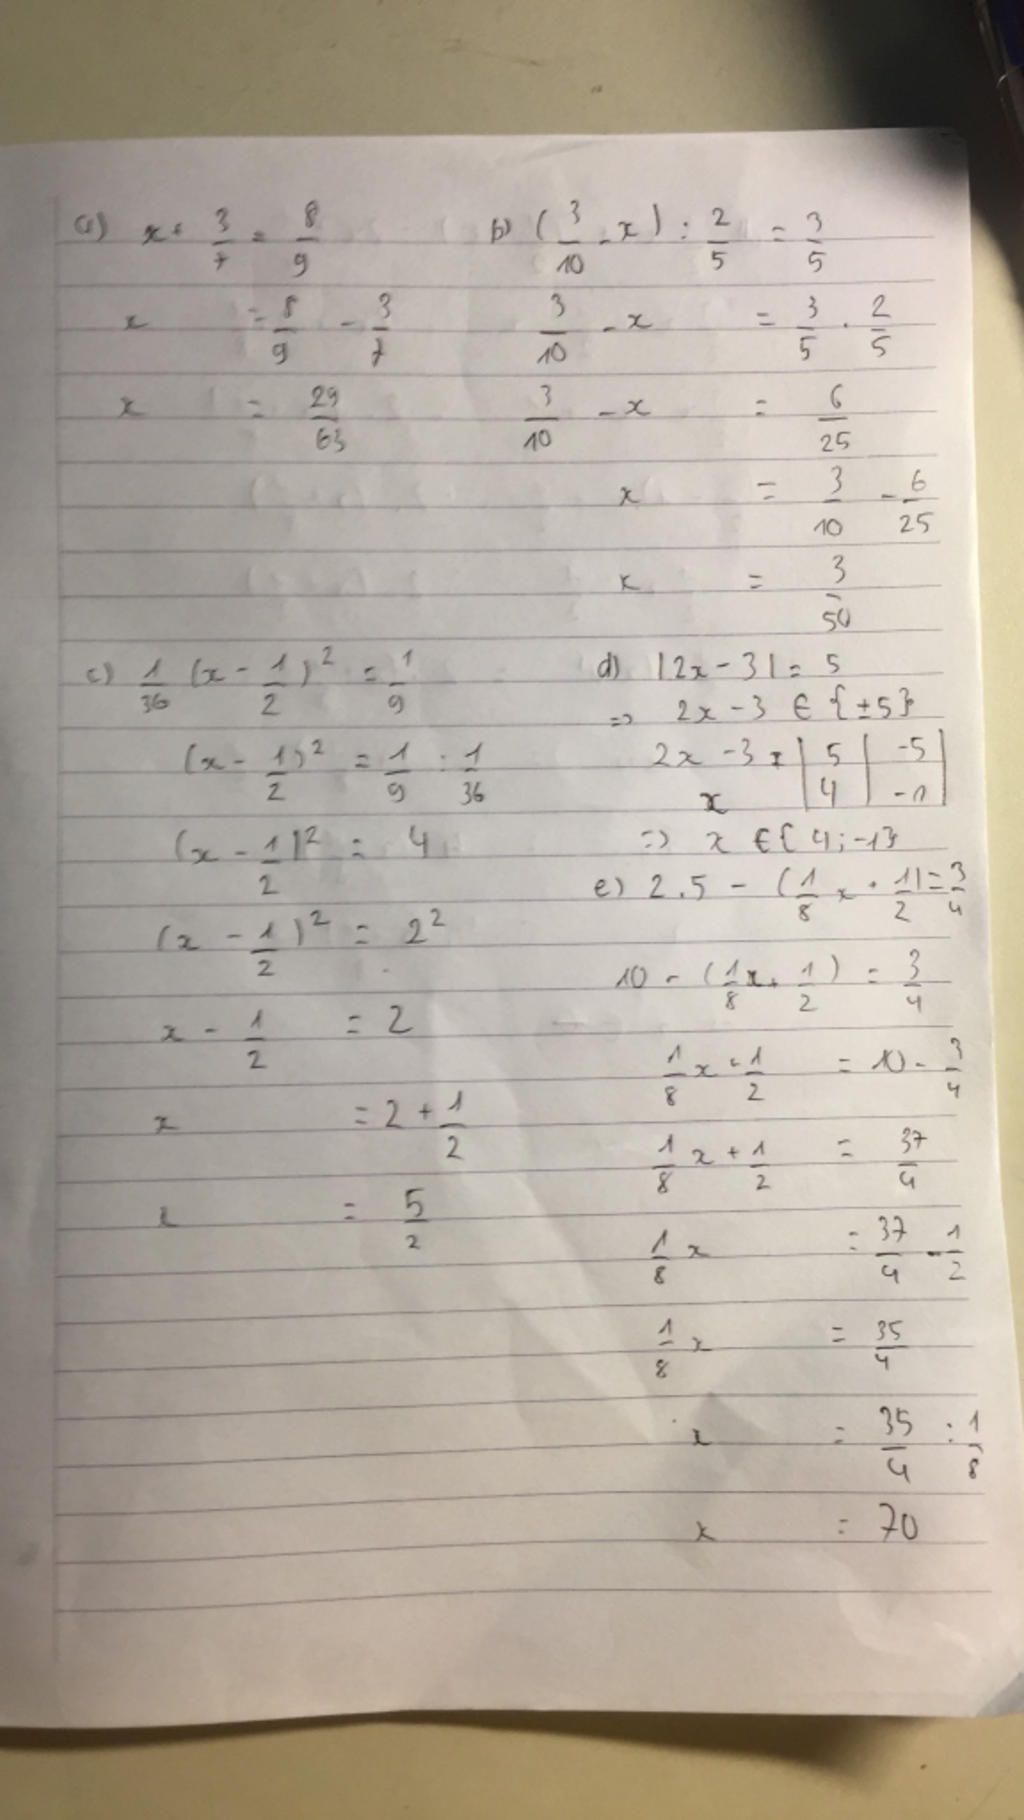 a) x + 3/7 = 8/9
x = 8/9 - 3/7
x = 29/63
b) (3/10 - x) : 2/5 = 3/5
3/10 - x = 3/5 . 2/5
3/10 - x = 6/25
x = 3/10 - 6/25
x = 3/50
c) 1/36 (x - 1/2)² = 1/9
(x - 1/2)² = 1/9 : 1/36
(x - 1/2)² = 4
(x - 1/2)² = 2²
x - 1/2 = 2
x = 2 + 1/2
x = 5/2
d) |2x - 3| = 5
=> 2x - 3 ∈ {±5}
2x - 3 = | 5 | -5 |
x | 4 | -1 |
=> x ∈ {4; -1}
e) 2.5 - (1/8 x + 1/2) = 3/4
10 - (1/8 x + 1/2) = 3/4
1/8 x + 1/2 = 10 - 3/4
1/8 x + 1/2 = 37/4
1/8 x = 37/4 - 1/2
1/8 x = 35/4
x = 35/4 : 1/8
x = 70